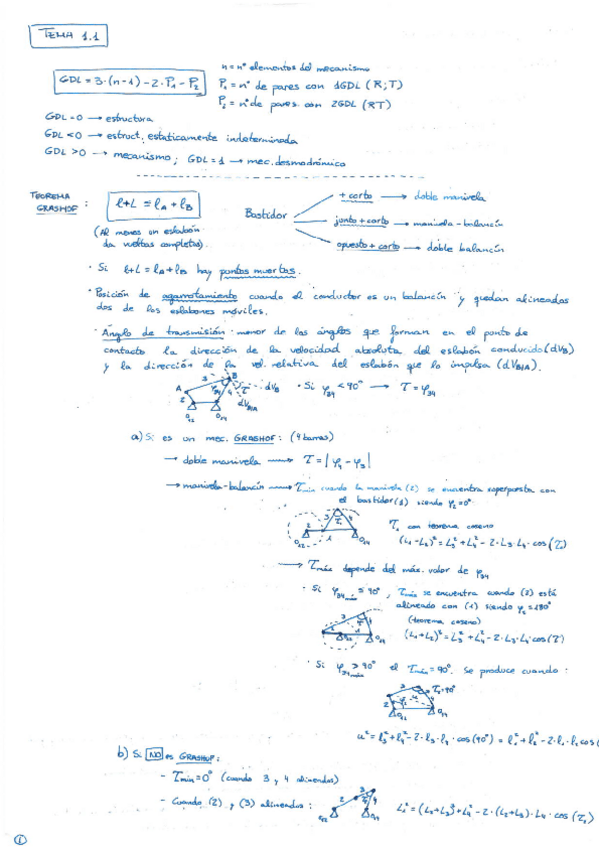 TEMA 1.1
GDL = 3·(n-1) - 2·P₁ - P₂
n = nº elementos del mecanismo
P₁ = nº de pares con 1GDL (R;T)
P₂ = nº de pares con 2GDL (RT)
GDL = 0 → estructura
GDL < 0 → estruct. estaticamente indeterminada
GDL > 0 → mecanismo; GDL = 1 → mec. desmodrómico
TEOREMA GRASHOF :
l+L ≤ lA + lB
(Al menos un eslabón
da vueltas completas).
Bastidor
+ corto → doble manivela
junto + corto → manivela-balancín
opuesto + corto → doble balancín
· Si l+L = lA+lB hay puntos muertos.
· Posición de agarrotamiento cuando el conductor es un balancín y quedan alineadas
dos de los eslabones móviles.
· Ángulo de transmisión: menor de los ángulos que forman en el punto de
contacto la dirección de la velocidad absoluta del eslabón conducido (dVB)
y la dirección de la vel. relativa del eslabón que lo impulsa (dVB/A).
A B 2 3 4 φ34 τ dVB dVB/A O12 O14
· Si φ34 < 90° → τ = φ34
a) Si es un mec. GRASHOF: (4 barras)
→ doble manivela → τ = |φ4 - φ3|
→ manivela-balancín → τmín cuando la manivela (2) se encuentra superpuesta con
el bastidor (1) siendo φ2 = 0°
τ1 con teorema coseno
(L1-L2)² = L3² + L4² - 2·L3·L4·cos(τ)
→ τmáx depende del máx. valor de φ34
· Si φ34máx ≤ 90°, τmáx se encuentra cuando (2) está
alineado con (1) siendo φ2 = 180°
(teorema coseno)
(L1+L2)² = L3² + L4² - 2·L3·L4·cos(τ)
· Si φ34máx > 90° el τmáx = 90°. Se produce cuando:
τ = 90°
u² = l3² + l4² - 2·l3·l4·cos(90°) = l1² + l2² - 2·l1·l2 cos(
b) Si NO es GRASHOF:
- τmín = 0° (cuando 3 y 4 alineados)
- Cuando (2) y (3) alineados:
L1² = (L2+L3)² + L4² - 2·(L2+L3)·L4·cos(τ1)
1